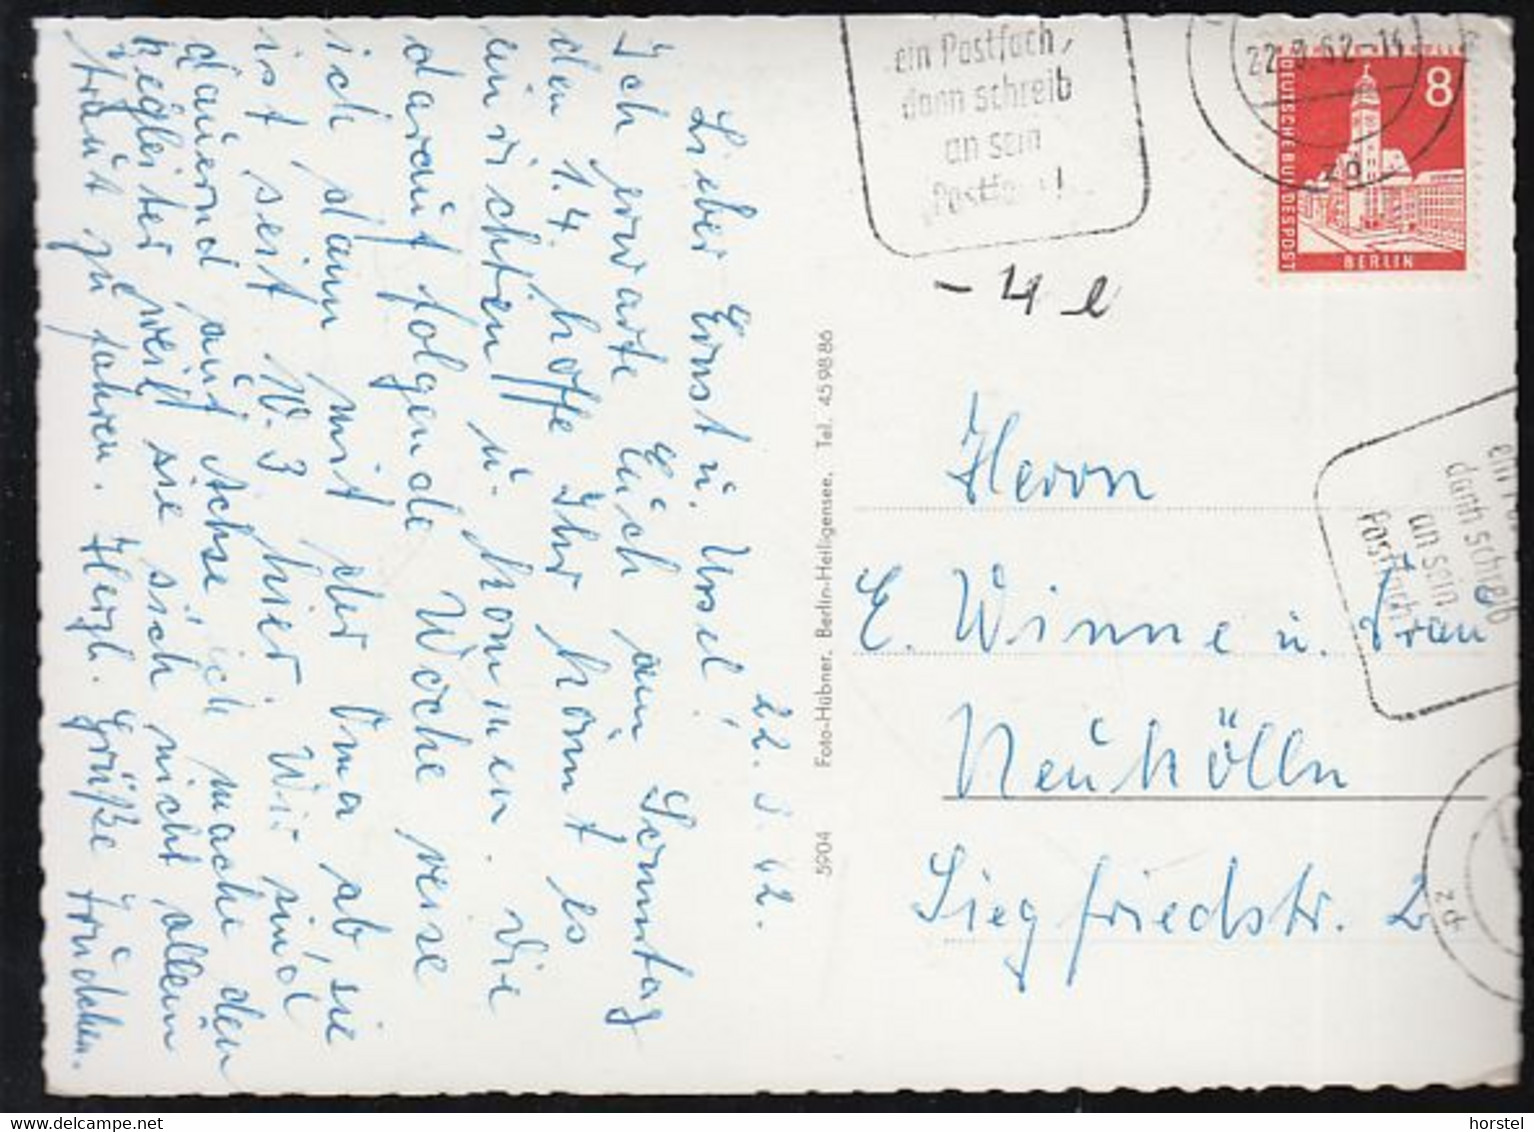 22. 3. 62.
Lieber Ernst u. Ursel!
Ich erwarte Euch am Sonntag
den 1.4. hoffe Ihr könnt es
einrichten u. kommen. Die
darauf folgende Woche reise
ich dann mit der Oma ab, sie
ist seit 10.3 hier. Wir sind
dauernd auf Achse, ich mache den
Begleiter weil sie sich nicht allein
traut zu fahren. Herzl. Grüße Trudchen.
5904 Foto-Hübner, Berlin-Heiligensee, Tel. 45 98 86
ein Postfach,
dann schreib
an sein
Postfach!
22. 3. 62-14
20
8
DEUTSCHE BUNDESPOST
BERLIN
- 4 e
Herrn
E. Winne u. Frau
Neukölln
Siegfriedstr. 2
ein Po
dann schreib
an sein
Postfach!